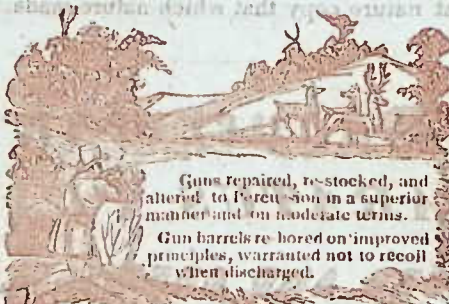 t nature copy that which nature
Guns repaired, re-stocked, and
altered to Percussion in a superior
manner and on moderate terms.
Gun barrels re-bored on improved
principles, warranted not to recoil
when discharged.